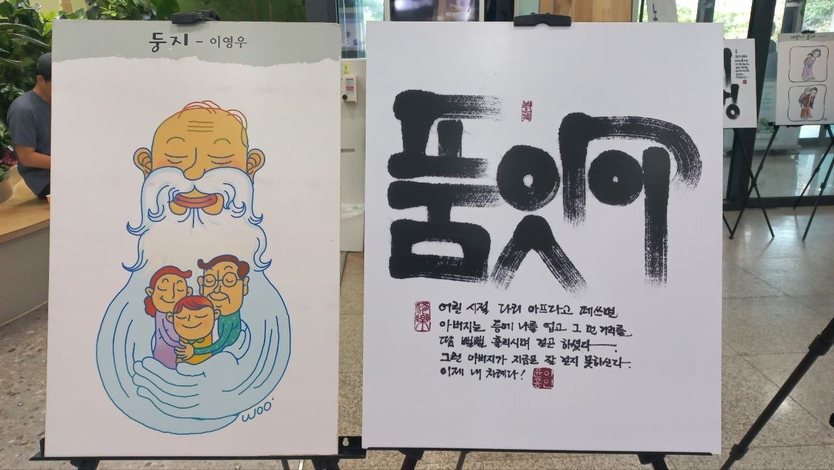 둥지 - 이영우
WOO
품앗이
어릴 시절 다리 아프다고 떼쓰면
아버지는 등에 나를 업고 그 먼 거리를
땀 뻘뻘 흘리시며 걷곤 하셨다
그런 아버지가 지금은 잘 걷지 못하신다.
이제 내 차례다!